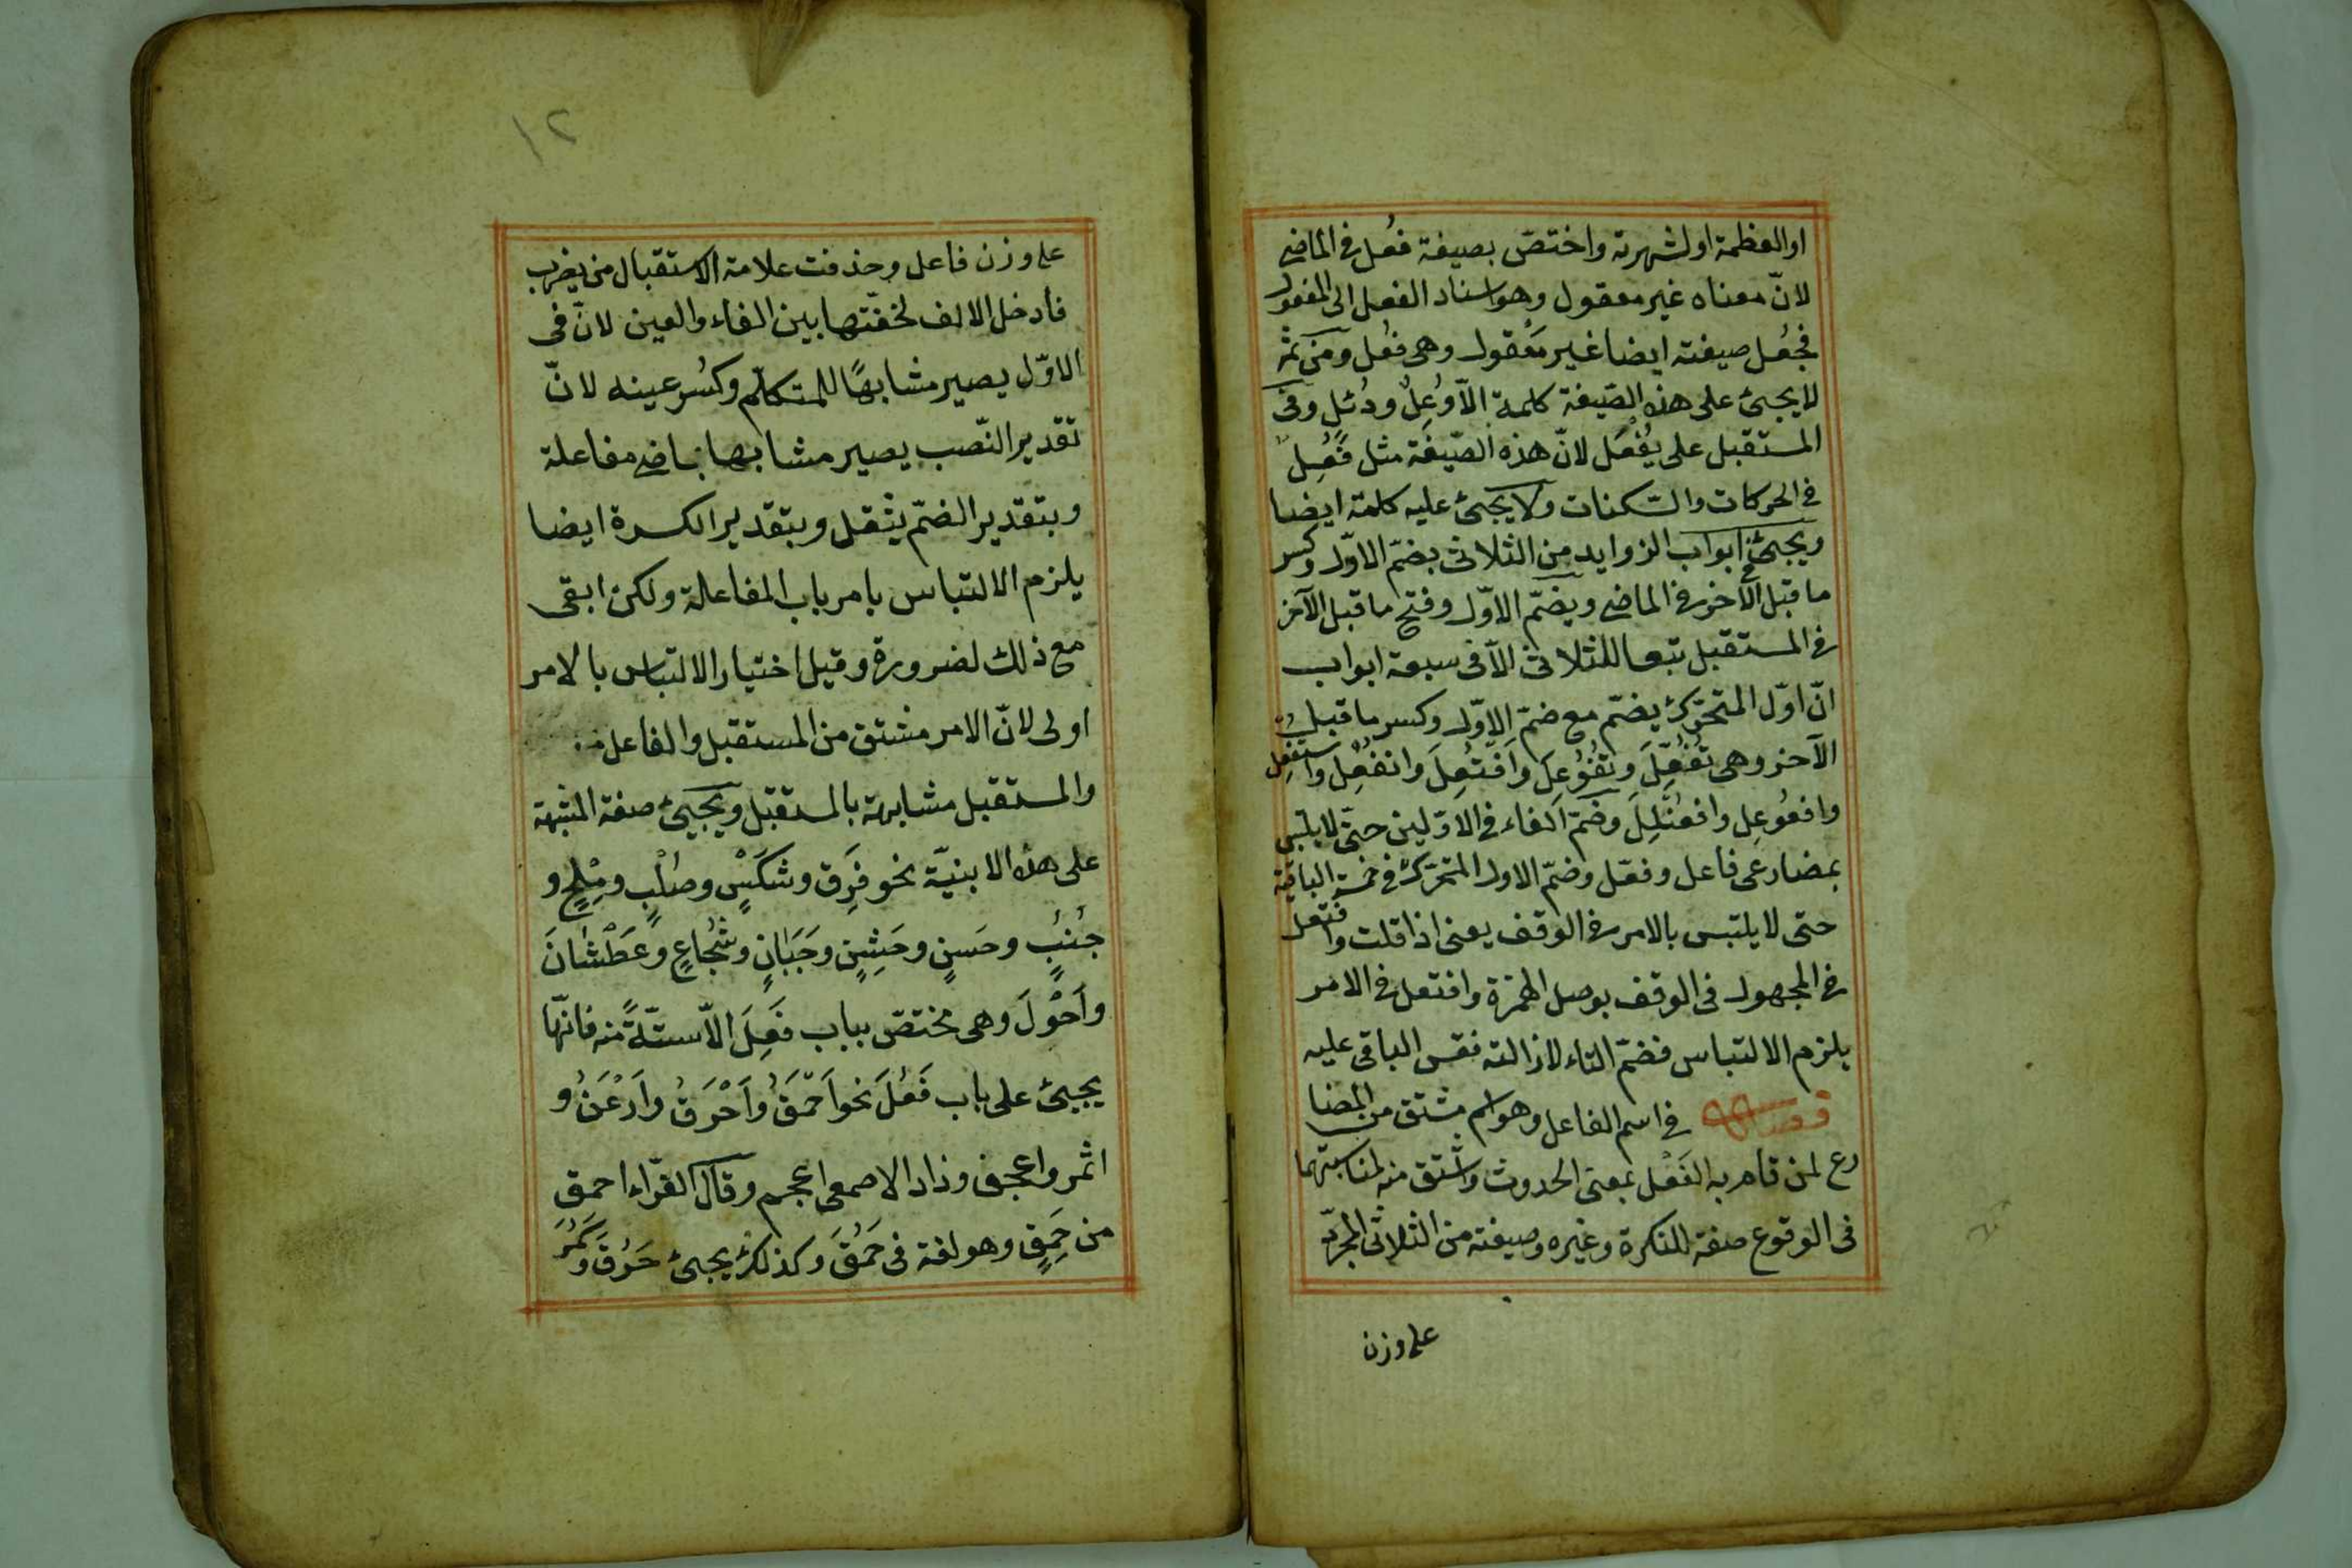 او العظمة او لشهرته واختصّ بصيغة فُعِل فى الماضى
لانّ معناه غير معقول وهو اسناد الفعل الى المفعول
فجُعل صيغته ايضا غير معقول وهى فُعِل ومن ثمّه
لا يجيئ على هذه الصّيغة كلمة الّا وُعِلٌ ودُئِلٍ وفى
المستقبل على يُفْعَل لانّ هذه الصّيغة مثل فُعْلِلٌ
فى الحركات والسّكنات ولا يجيئ عليه كلمة ايضا
ويجيئ ابواب الزوايد من الثلاثى بضمّ الاوّل وكسر
ما قبل الآخر فى الماضى وبضمّ الاوّل وفتح ما قبل الآخر
فى المستقبل تبعا للثلاثى الّا فى سبعة ابواب
انّ اوّل المتحرّك يضمّ مع ضمّ الاوّل وكسر ما قبل
الآخر وهى تُفُعِّلَ وتُفُوعِلَ وَافْتُعِلَ وانفُعِل واستُفْعِل
وافعُوعِل وافعُنْلِلَ وضمّ الفاء فى الاوّلين حتّى لا يلتبس
بمضارعى فاعل وفعّل وضمّ الاول المتحرّك فى خمسة الباقية
حتى لا يلتبس بالامر فى الوقف يعنى اذا قلت وافتعل
فى المجهول فى الوقف بوصل الهمزة وافتعل فى الامر
يلزم الالتباس فضمّ التاء لازالته فقس الباقى عليه
فصل فى اسم الفاعل وهو اسم مشتق من المضا
رع لمن قام به الفَعْل بمعنى الحدوث واشتق منه لمناسبتهما
فى الوقوع صفة للنكرة وغيره وصيغته من الثلاثى المجرّد
على وزن
١٢
على وزن فاعل وحذفت علامة الاستقبال من يضرب
فادخل الالف لخفّتها بين الفاء والعين لانّ فى
الاوّل يصير مشابهًا للمتكلّم وكُسر عينه لانّ
تقدير النّصب يصير مشابها بماضى مفاعلة
وبتقدير الضمّ يثقل وبتقدير الكسرة ايضا
يلزم الالتباس بامر باب المفاعلة ولكن ابقى
مع ذلك لضرورة وقيل اختيار الالتباس بالامر
اولى لانّ الامر مشتق من المستقبل والفاعل
والمستقبل مشابهة بالمستقبل ويجيئ صفة المشبهة
على هذه الابنيّة نحو فَرِق وشَكْسٍ وصُلْبٍ ومِلْحٍ و
جُنُبٍ وحَسَنٍ وخَشِنٍ وجَبَانٍ وشُجَاعٍ وعَطْشَانَ
وَاَحْوَلَ وهى مختصّ بباب فَعِلَ الّا ستّةً منه فانّها
يجيئ على باب فَعُلَ نحو اَحْمَقُ واَخْرَقُ واَرْعَنُ و
اثمر واعجف وزاد الاصمعى اعجم وقال الفرّاء احمق
من حَمِقٍ وهو لغة فى حَمُقَ وكذلك يجيئ خَرُقَ وَسَمُرَ